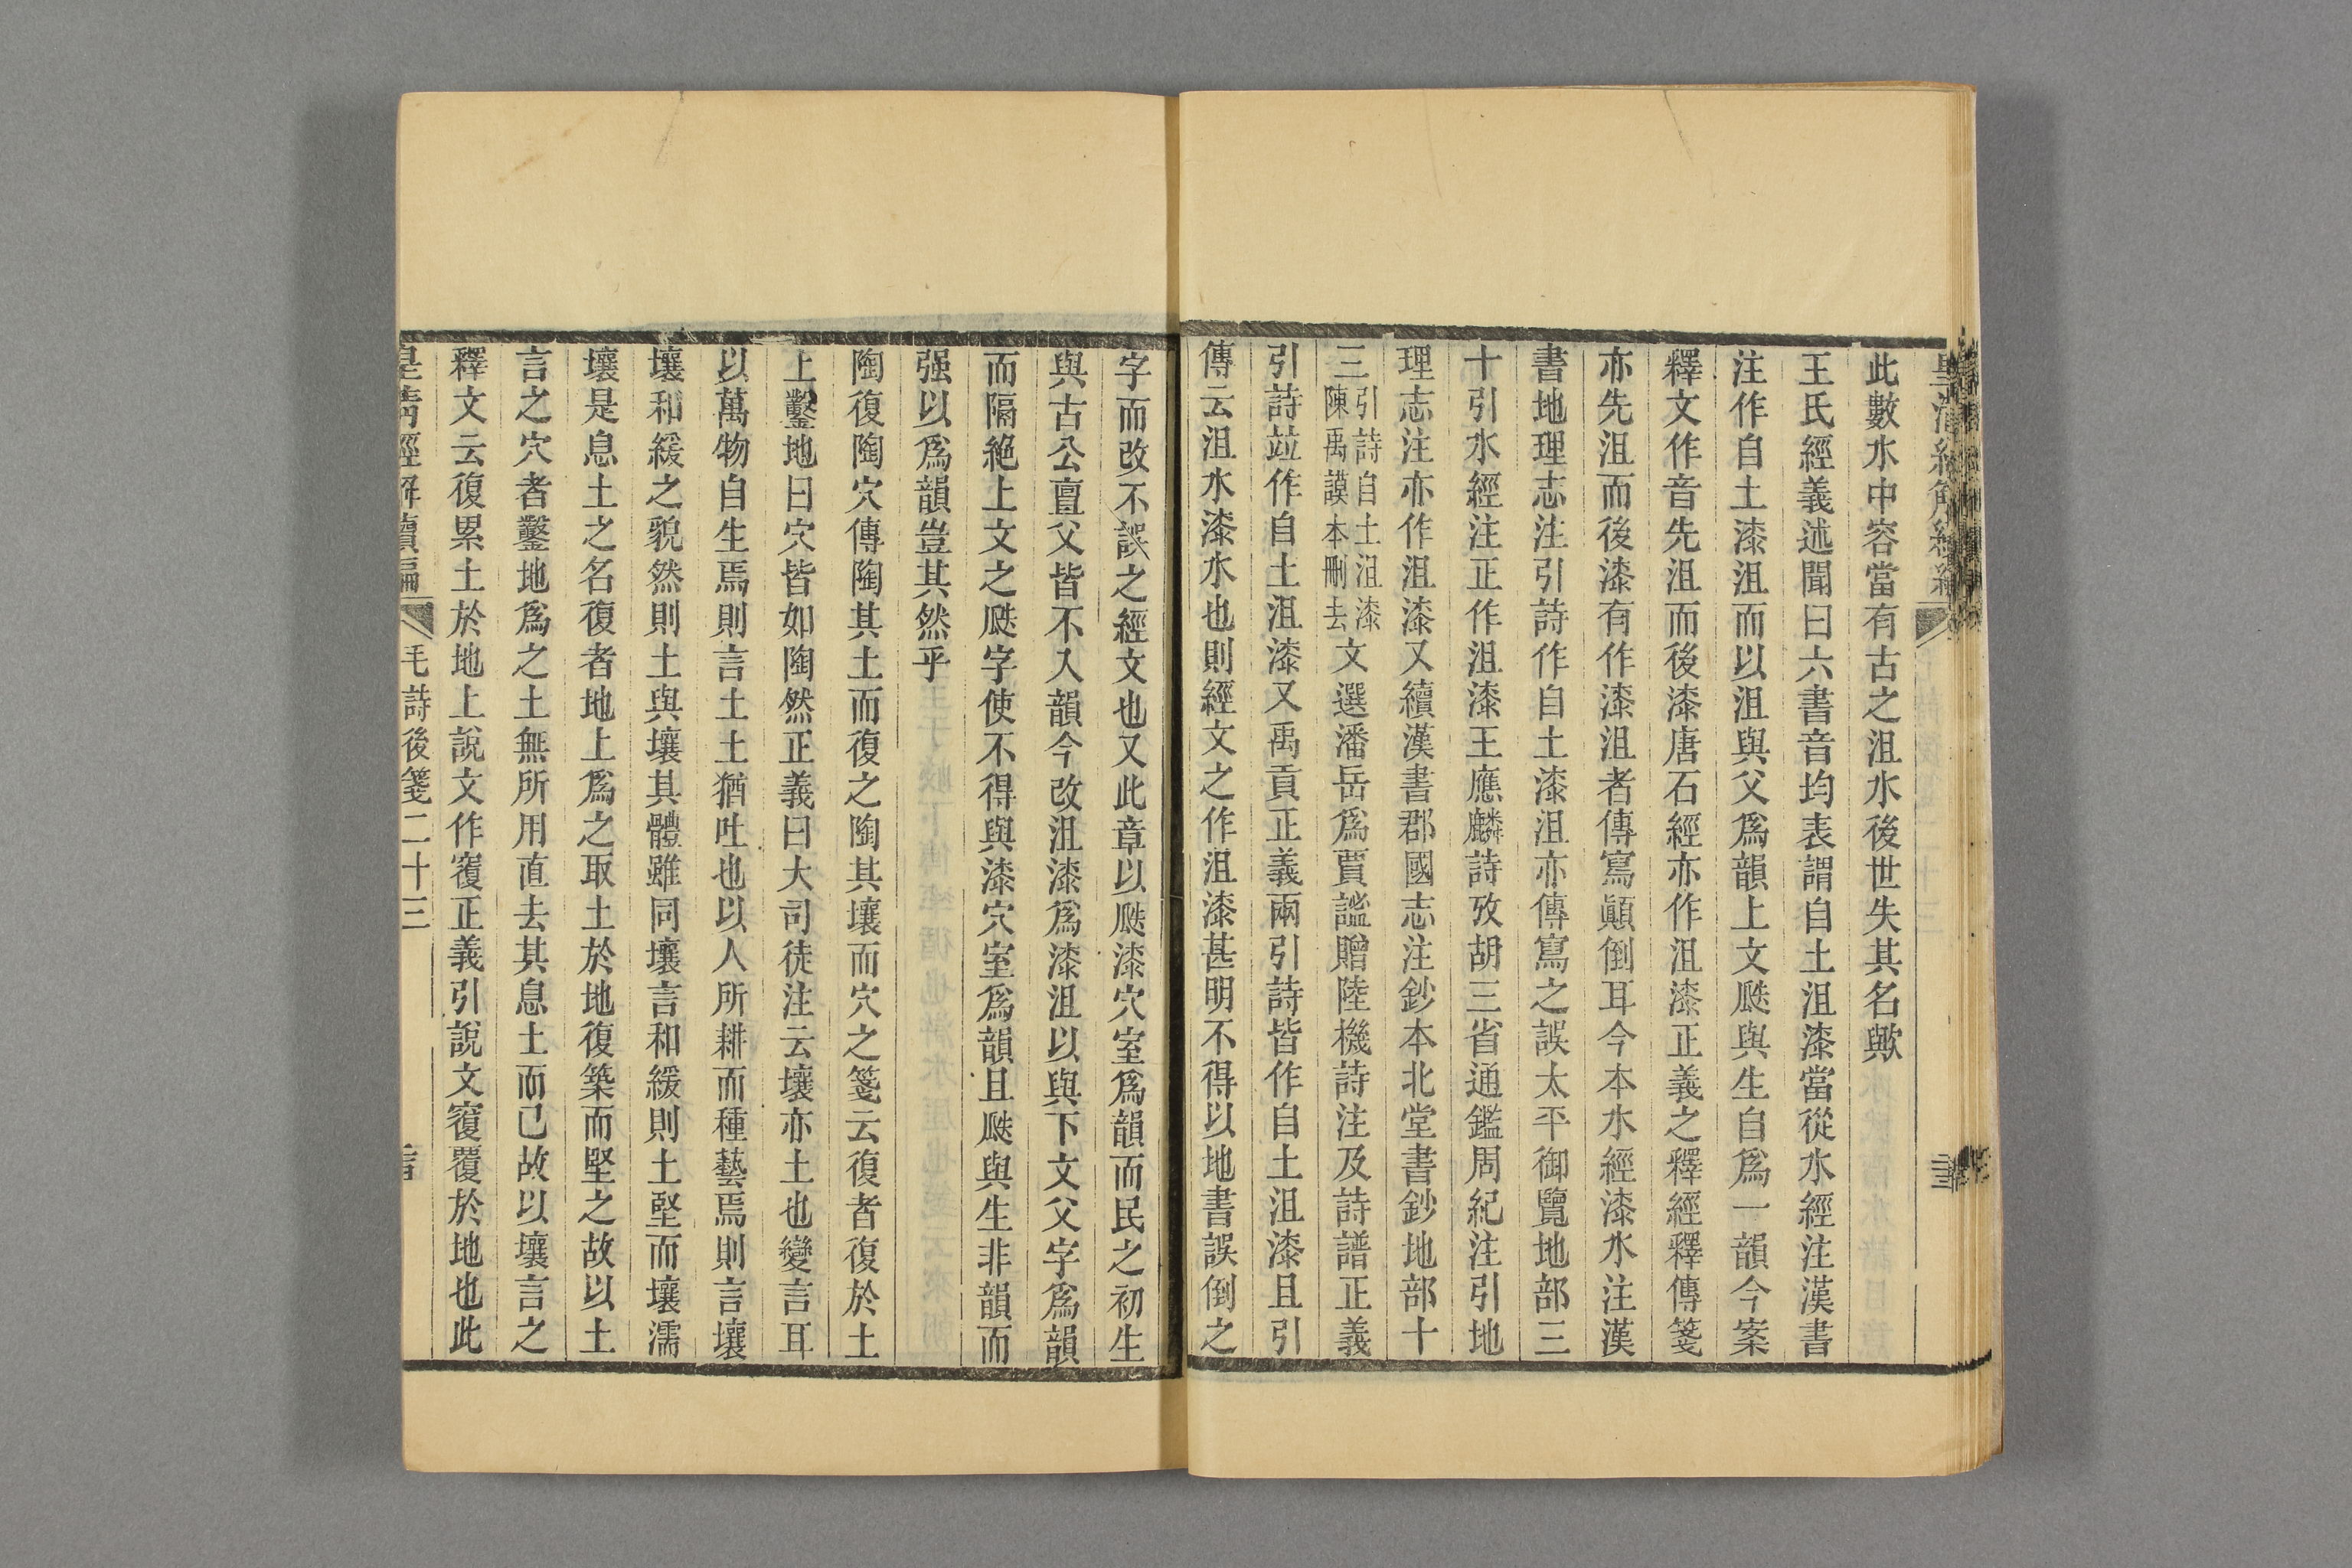 此數水中容當有古之沮水後世失其名歟
王氏經義述聞曰六書音均表謂自土沮漆當從水經注漢書
注作自土漆沮而以沮與父爲韻上文瓞與生自爲一韻今案
釋文作音先沮而後漆唐石經亦作沮漆正義之釋經釋傳箋
亦先沮而後漆有作漆沮者傳寫顚倒耳今本水經漆水注漢
書地理志注引詩作自土漆沮亦傳寫之誤太平御覽地部三
十引水經注正作沮漆王應麟詩攷胡三省通鑑周紀注引地
理志注亦作沮漆又續漢書郡國志注鈔本北堂書鈔地部十
三引詩自土沮漆陳禹謨本刪去文選潘岳爲賈謐贈陸機詩注及詩譜正義
引詩竝作自土沮漆又禹貢正義兩引詩皆作自土沮漆且引
傳云沮水漆水也則經文之作沮漆甚明不得以地書誤倒之
字而改不誤之經文也又此章以瓞漆穴室爲韻而民之初生
與古公亶父皆不入韻今改沮漆爲漆沮以與下文父字爲韻
而隔絶上文之瓞字使不得與漆穴室爲韻且瓞與生非韻而
强以爲韻豈其然乎
陶復陶穴傳陶其土而復之陶其壤而穴之箋云復者復於土
上鑿地曰穴皆如陶然正義曰大司徒注云壤亦土也變言耳
以萬物自生焉則言土土猶吐也以人所耕而種藝焉則言壤
壤和緩之貌然則土與壤其體雖同壤言和緩則土堅而壤濡
壤是息土之名復者地上爲之取土於地復築而堅之故以土
言之穴者鑿地爲之土無所用直去其息土而已故以壤言之
釋文云復累土於地上說文作䨱正義引說文䨱覆於地也此
皇清經解續編 毛詩後箋二十三